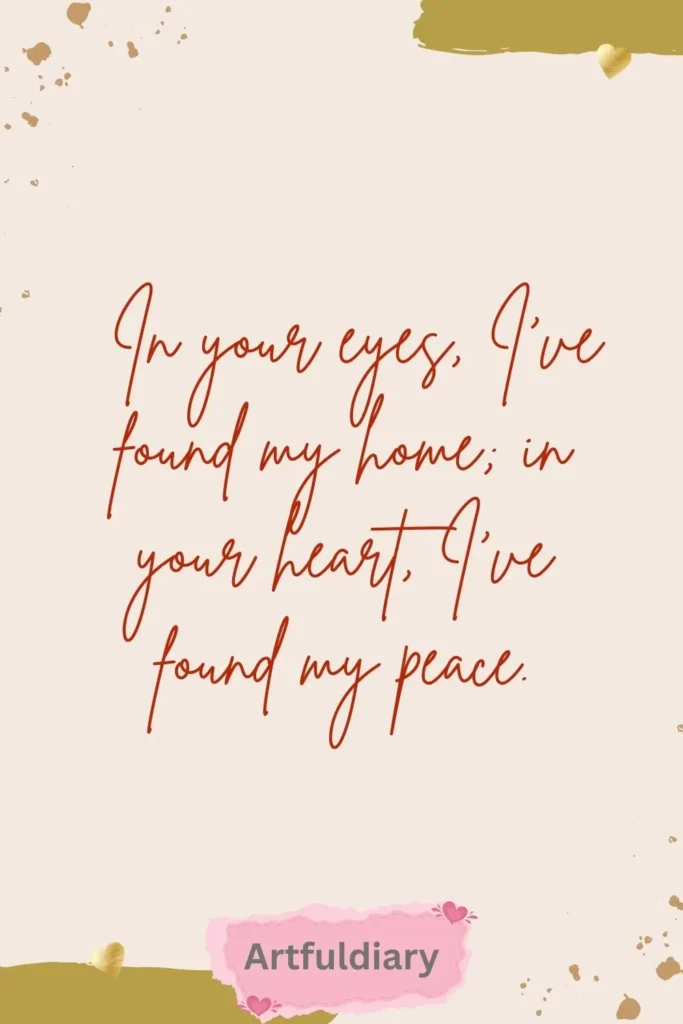 In your eyes, I've
found my home; in
your heart, I've
found my peace.
Artfuldiary